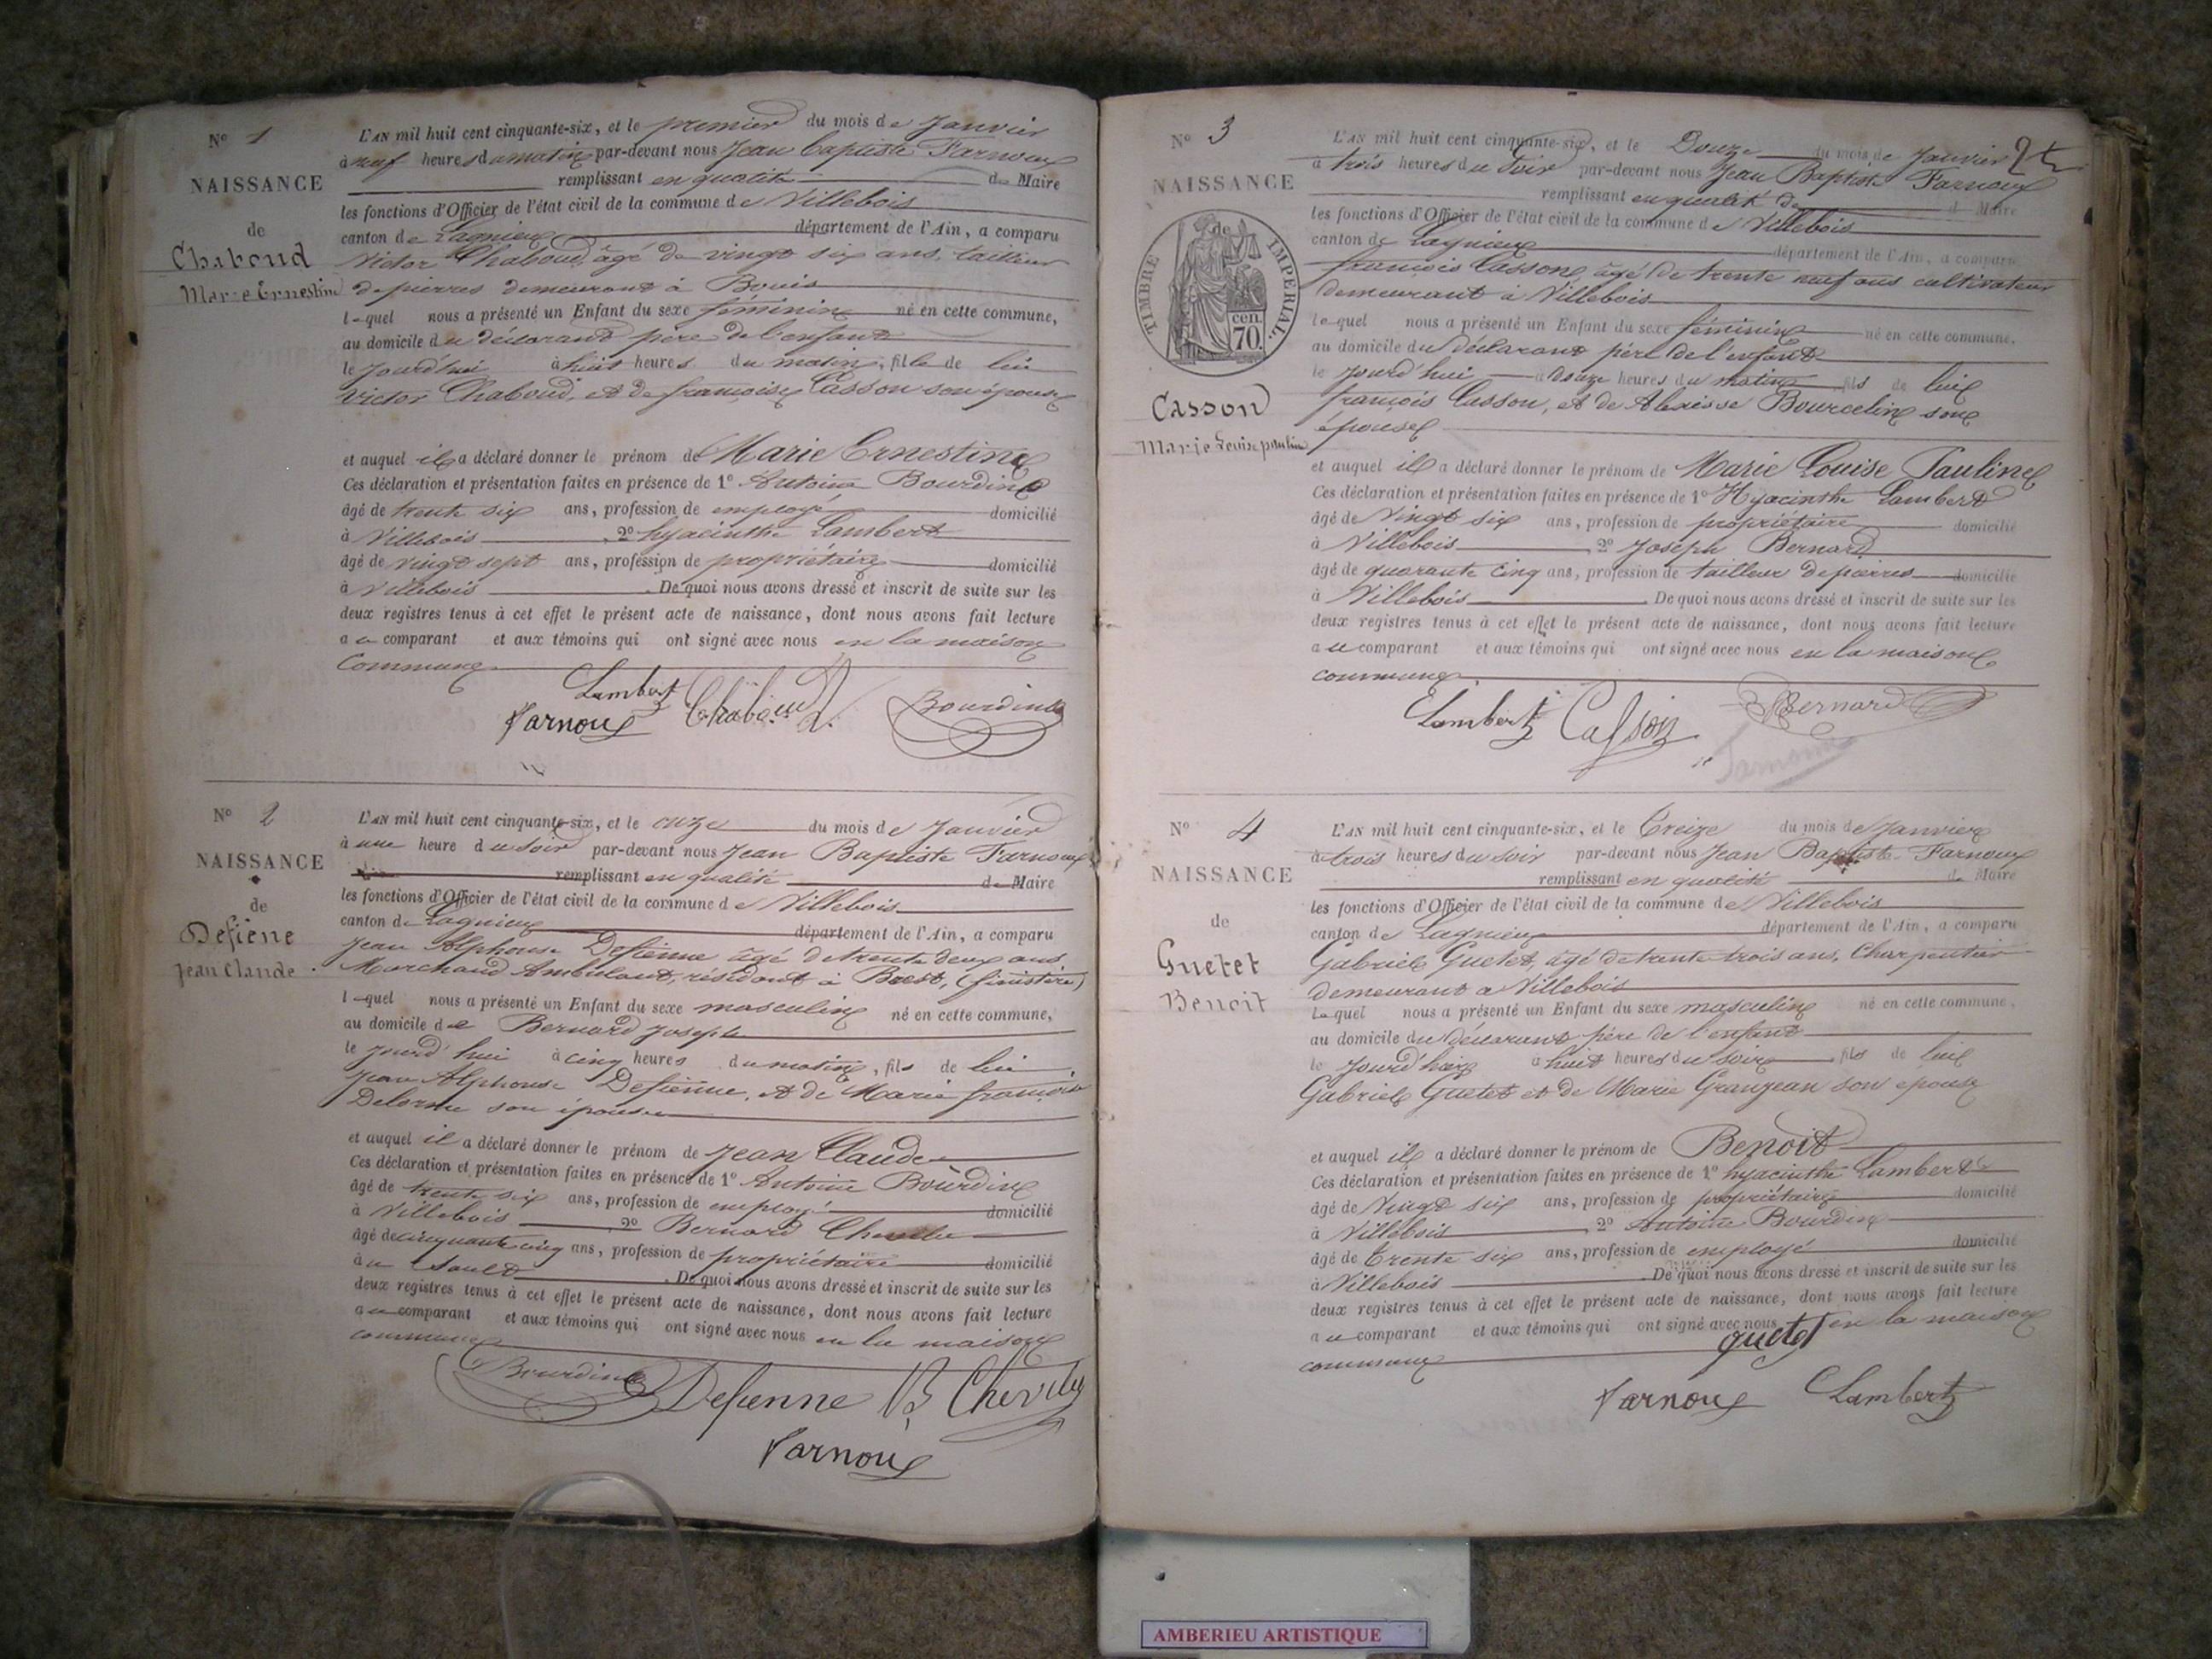 N° 1
NAISSANCE
de
Chaboud
Marie Ernestine
L'AN mil huit cent cinquante-six, et le premier du mois de Janvier
à neuf heures du matin par-devant nous Jean Baptiste Farnoux
remplissant en qualité de Maire
les fonctions d'Officier de l'état civil de la commune de Villebois
canton de Lagnieux département de l'Ain, a comparu
Victor Chaboud, âgé de vingt six ans, tailleur
de pierres demeurant à Bouis
lequel nous a présenté un Enfant du sexe féminin né en cette commune,
au domicile du déclarant père de l'enfant
le jourd'hui à huit heures du matin, fille de lui
Victor Chaboud, et de françoise Casson son épouse
et auquel il a déclaré donner le prénom de Marie Ernestine
Ces déclaration et présentation faites en présence de 1° Antoine Bourdin
âgé de trente six ans, profession de employé domicilié
à Villebois 2° hyacinthe Lambert
âgé de vingt sept ans, profession de propriétaire domicilié
à Villebois. De quoi nous avons dressé et inscrit de suite sur les
deux registres tenus à cet effet le présent acte de naissance, dont nous avons fait lecture
au comparant et aux témoins qui ont signé avec nous en la maison
commune
Lambert Chaboud Bourdin
Farnoux
N° 2
NAISSANCE
de
Defiene
Jean Claude
L'AN mil huit cent cinquante-six, et le onze du mois de Janvier
à une heure du soir par-devant nous Jean Baptiste Farnoux
remplissant en qualité de Maire
les fonctions d'Officier de l'état civil de la commune de Villebois
canton de Lagnieux département de l'Ain, a comparu
Jean Alphonse Defienne âgé de trente deux ans
Marchand Ambulant, résidant à Brest, (finistère)
lequel nous a présenté un Enfant du sexe masculin né en cette commune,
au domicile de Bernard Joseph
le jourd'hui à cinq heures du matin, fils de lui
Jean Alphonse Defienne, et de Marie françoise
Delorme son épouse
et auquel il a déclaré donner le prénom de Jean Claude
Ces déclaration et présentation faites en présence de 1° Antoine Bourdin
âgé de trente six ans, profession de employé domicilié
à Villebois 2° Bernard
âgé de cinquante cinq ans, profession de propriétaire domicilié
au Sault. De quoi nous avons dressé et inscrit de suite sur les
deux registres tenus à cet effet le présent acte de naissance, dont nous avons fait lecture
au comparant et aux témoins qui ont signé avec nous en la maison
commune
Bourdin Defienne B Chevily
Farnoux
N° 3
NAISSANCE
de
TIMBRE IMPERIAL.
70 cen.
Casson
Marie Louise pauline
L'AN mil huit cent cinquante-six, et le Douze du mois de Janvier
à trois heures du Soir par-devant nous Jean Baptiste Farnoux
remplissant en qualité de Maire
les fonctions d'Officier de l'état civil de la commune de Villebois
canton de Lagnieux département de l'Ain, a comparu
françois Casson, âgé de trente neuf ans cultivateur
demeurant à Villebois
lequel nous a présenté un Enfant du sexe féminin né en cette commune,
au domicile du déclarant père de l'enfant
le jourd'hui à douze heures du matin fils de lui
françois Casson, et de Alexisse Bourcelin son
épouse
et auquel il a déclaré donner le prénom de Marie Louise Pauline
Ces déclaration et présentation faites en présence de 1° Hyacinthe Lambert
âgé de Vingt six ans, profession de propriétaire domicilié
à Villebois 2° Joseph Bernard
âgé de quarante cinq ans, profession de tailleur de pierres domicilié
à Villebois. De quoi nous avons dressé et inscrit de suite sur les
deux registres tenus à cet effet le présent acte de naissance, dont nous avons fait lecture
au comparant et aux témoins qui ont signé avec nous en la maison
commune
Lambert Casson Bernard
Farnoux
N° 4
NAISSANCE
de
Guetet
Benoit
L'AN mil huit cent cinquante-six, et le Treize du mois de Janvier
à trois heures du soir par-devant nous Jean Baptiste Farnoux
remplissant en qualité de Maire
les fonctions d'Officier de l'état civil de la commune de Villebois
canton de Lagnieux département de l'Ain, a comparu
Gabriel Guetet, âgé de trente trois ans, Charpentier
demeurant a Villebois
lequel nous a présenté un Enfant du sexe masculin né en cette commune,
au domicile du déclarant père de l'enfant
le jourd'hier à huit heures du soir, fils de lui
Gabriel Guetet et de Marie Granjean son épouse
et auquel il a déclaré donner le prénom de Benoit
Ces déclaration et présentation faites en présence de 1° hyacinthe Lambert
âgé de Vingt six ans, profession de propriétaire domicilié
à Villebois 2° Antoine Bourdin
âgé de Trente six ans, profession de employé domicilié
à Villebois. De quoi nous avons dressé et inscrit de suite sur les
deux registres tenus à cet effet le présent acte de naissance, dont nous avons fait lecture
au comparant et aux témoins qui ont signé avec nous en la maison
commune guetet
Farnoux Lambert
AMBERIEU ARTISTIQUE